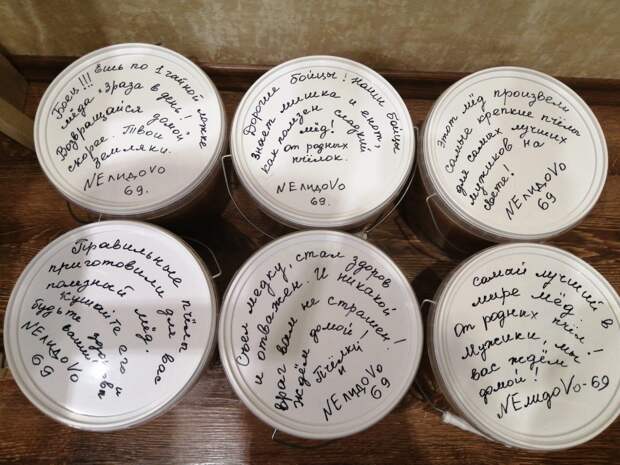 Боец!!! Ешь по 1 чайной ложке
мёда "3 раза в день!
Возвращайся домой
скорее. Твои
земляки.
NЕлидоVо
69.
Дорогие бойцы! Наши бойцы
знает мишка и енот,
как полезен сладкий
мёд!
от родных
пчёлок.
NЕлидоVо
69.
Этот мёд произвели
самые крепкие пчёлы
для самых лучших
мужиков на
свете!
NЕлидоVо
69
Правильные пчёлы
приготовили для вас
полезный мёд.
Кушайте его и
будьте здоровы
NЕлидоVо
69
Съел медку, стал здоров
и отважен. И никакой
враг вам не страшен!
ждём домой!
Пчёлки
и
NЕлидоVо
69
самый лучший в
мире мёд
от родных пчёл!
Мужики, мы
вас ждём
домой!
NЕлидоVо-69